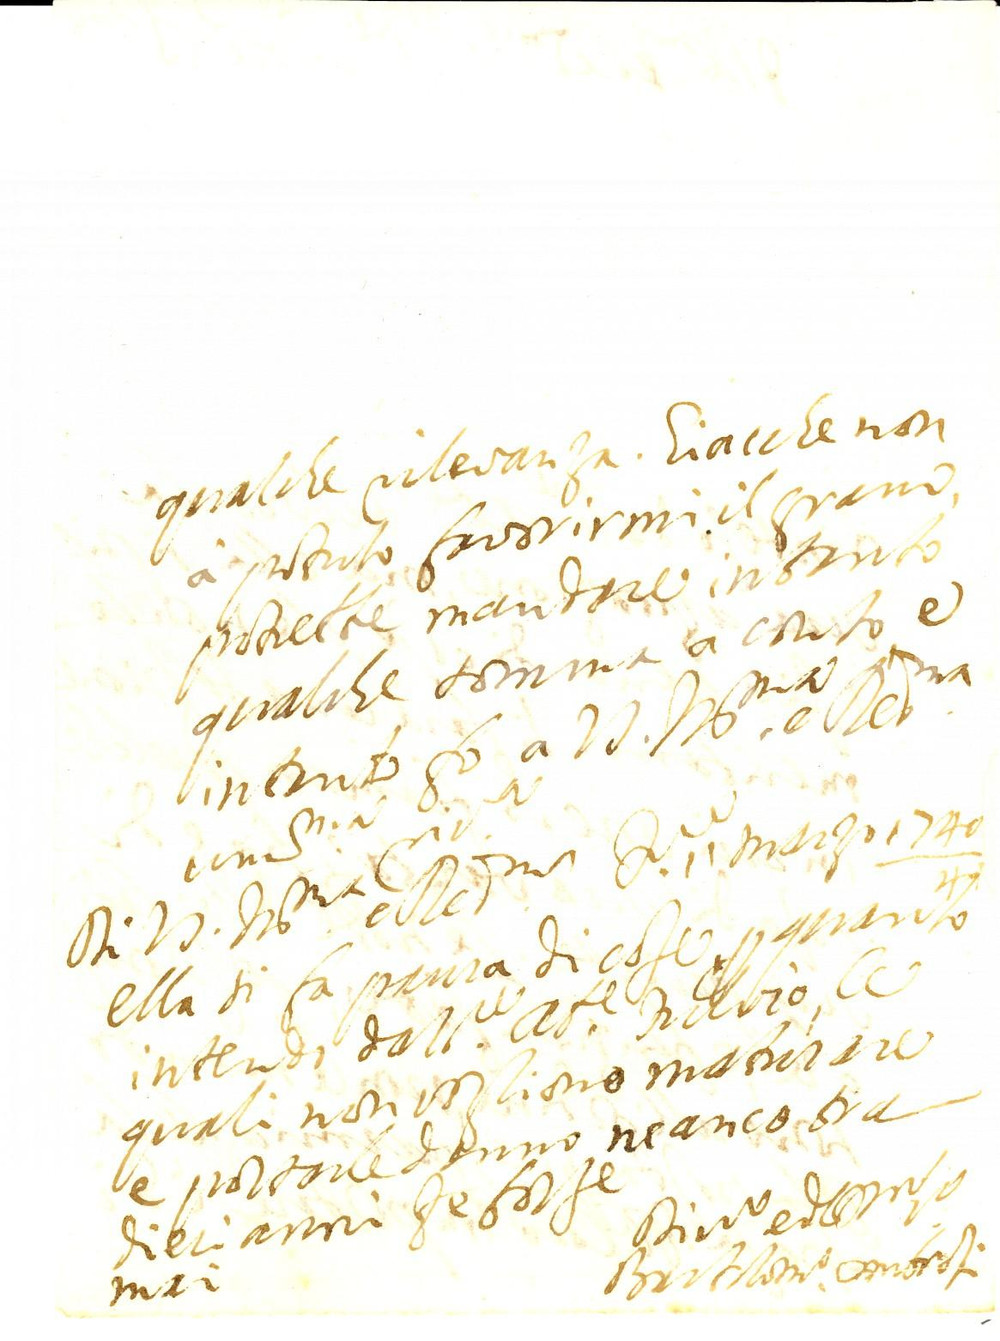 qualche rilevanza. Giacche non
à potuto favorirmi il grano,
potrebbe mandare intanto
qualche somma a conto e
intanto fo a V.S. Ill.ma e Rev.ma
um.ma riv.a
Di V.S. Ill.ma e Rev.ma Li 11 marzo 1740
ella si fa paura di cose, p quanto
intendi dall' Ab.e le
quali non vogliono maturare
e portare danno neanco tra
dieci anni se forse
mai
Div.o ed Obb.
Bartolom.o